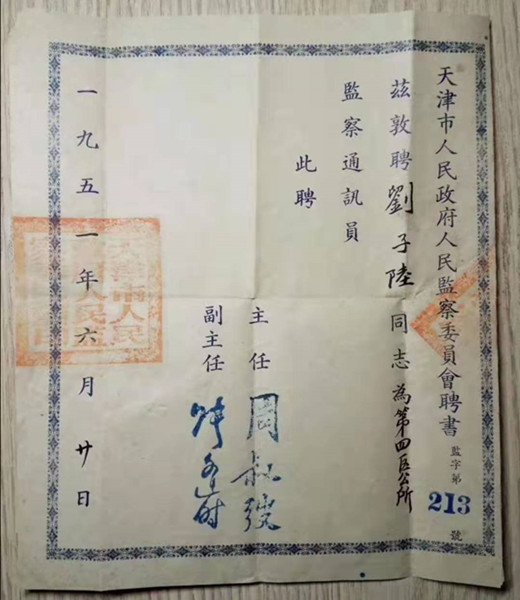 天津市人民政府人民監察委員會聘書
監字第213號
茲敦聘劉子陸同志為第四區公所
監察通訊員
此聘
主任周叔弢
副主任
一九五一年六月廿日